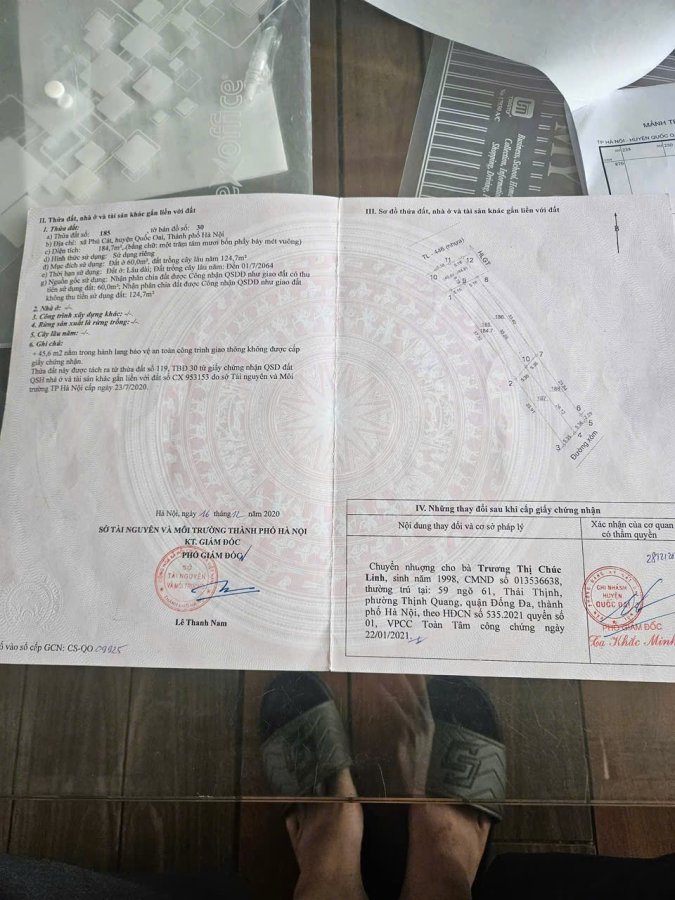 MẢNH T
TP HÀ NỘI - HUYỆN QUỐC O
Business, School, Home
Collection, Information
Shopping, Driving,
MY
office
II. Thửa đất, nhà ở và tài sản khác gắn liền với đất
1. Thửa đất:
a) Thửa đất số: 185 tờ bản đồ số: 30
b) Địa chỉ: xã Phú Cát, huyện Quốc Oai, Thành phố Hà Nội
c) Diện tích: 184,7m², (bằng chữ: một trăm tám mươi bốn phẩy bảy mét vuông)
d) Hình thức sử dụng: Sử dụng riêng
đ) Mục đích sử dụng: Đất ở 60,0m², đất trồng cây lâu năm 124,7m²
e) Thời hạn sử dụng: Đất ở: Lâu dài; Đất trồng cây lâu năm: Đến 01/7/2064
g) Nguồn gốc sử dụng: Nhận phân chia đất được Công nhận QSDĐ như giao đất có thu
tiền sử dụng đất: 60,0m²; Nhận phân chia đất được Công nhận QSDĐ như giao đất
không thu tiền sử dụng đất: 124,7m²
2. Nhà ở: -/-
3. Công trình xây dựng khác: -/-
4. Rừng sản xuất là rừng trồng: -/-
5. Cây lâu năm: -/-
6. Ghi chú:
+ 45,6 m2 nằm trong hành lang bảo vệ an toàn công trình giao thông không được cấp
giấy chứng nhận.
Thửa đất này được tách ra từ thửa đất số 119, TBĐ 30 từ giấy chứng nhận QSD đất
QSH nhà ở và tài sản khác gắn liền với đất số CX 953153 do sở Tài nguyên và Môi
trường TP Hà Nội cấp ngày 23/7/2020.
Hà Nội, ngày 16 tháng 12 năm 2020
SỞ TÀI NGUYÊN VÀ MÔI TRƯỜNG THÀNH PHỐ HÀ NỘI
KT. GIÁM ĐỐC
PHÓ GIÁM ĐỐC
SỞ
TÀI NGUYÊN
VÀ MÔI TRƯỜNG
Lê Thanh Nam
ố vào sổ cấp GCN: CS-QO 09925
III. Sơ đồ thửa đất, nhà ở và tài sản khác gắn liền với đất
B
TL 446 (nhựa)
HLGT
10
11
12
9
8
1
186
185
184.7
10
7
2
187
6
5
4
3
Đường xóm
IV. Những thay đổi sau khi cấp giấy chứng nhận
Nội dung thay đổi và cơ sở pháp lý
Xác nhận của cơ quan
có thẩm quyền
Chuyển nhượng cho bà Trương Thị Chúc
Linh, sinh năm 1998, CMND số 013536638,
thường trú tại: 59 ngõ 61, Thái Thịnh,
phường Thịnh Quang, quận Đống Đa, thành
phố Hà Nội, theo HĐCN số 535.2021 quyển số
01, VPCC Toàn Tâm công chứng ngày
22/01/2021.
CHI NHÁNH
HUYỆN
QUỐC OAI
PHÓ GIÁM ĐỐC
Tạ Khắc Minh